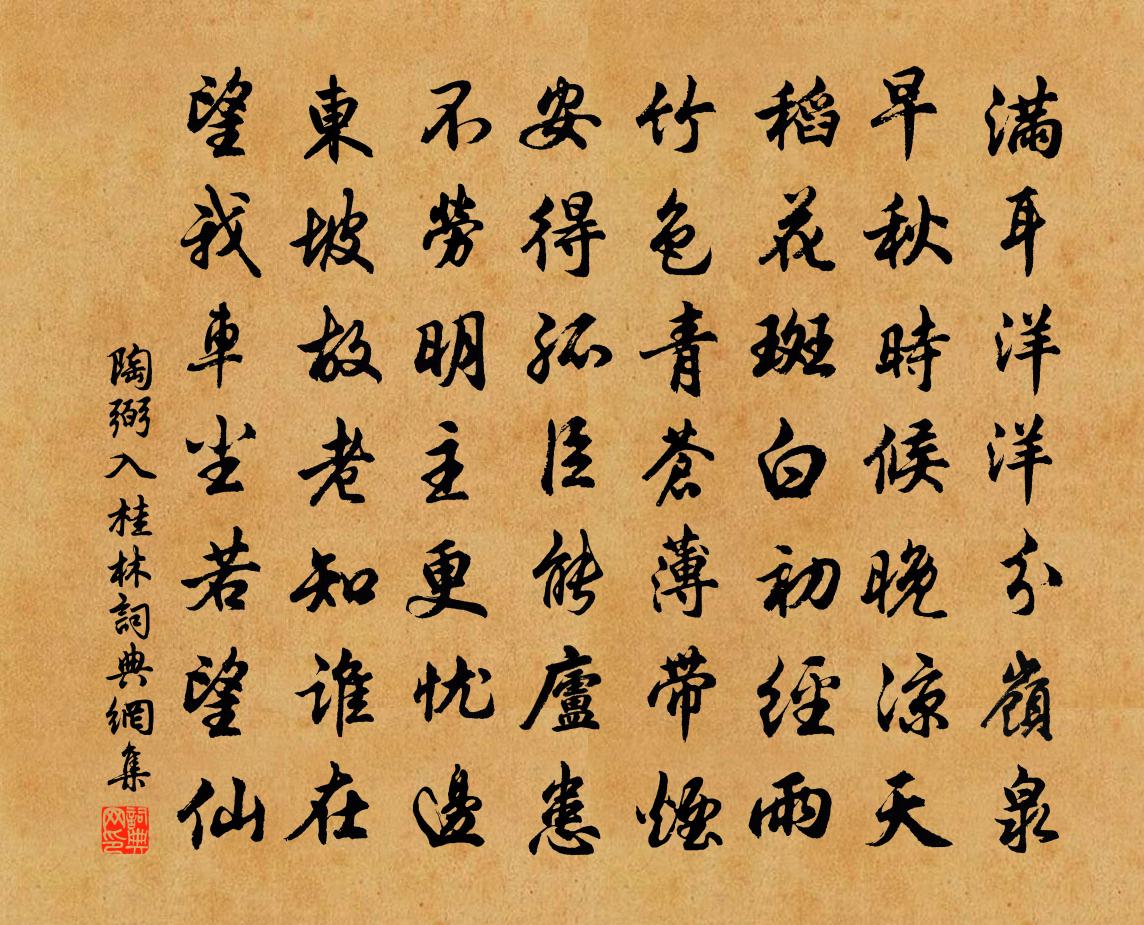 滿耳洋洋分嶺泉
早秋時候晚涼天
稻花斑白初經雨
竹色青蒼薄帶煙
安得孤臣能廬患
不勞明主更憂邊
東坡故老知誰在
望我車塵若望仙
陶弼入桂林詞典網集
詞典网印